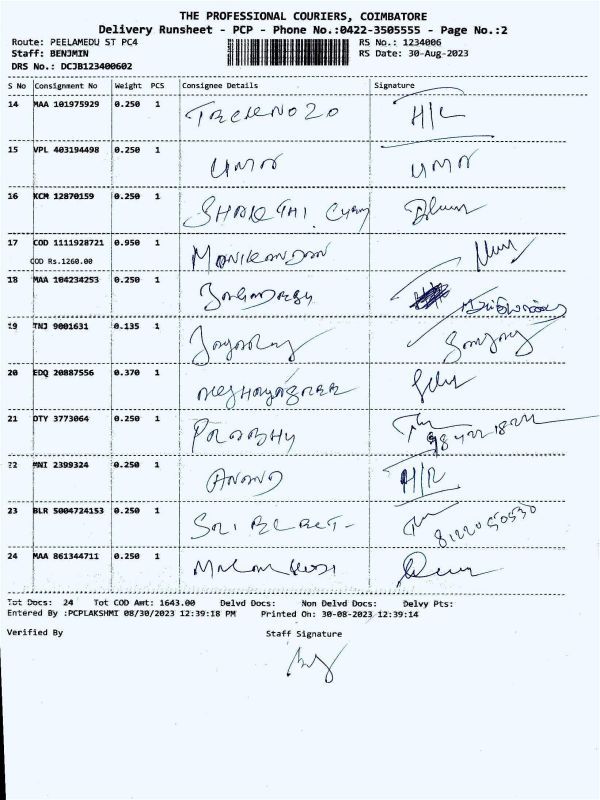 THE PROFESSIONAL COURIERS, COIMBATORE
Delivery Runsheet - PCP - Phone No.:0422-3505555 - Page No.:2
Route: PEELAMEDU ST PC4 RS No.: 1234006
Staff: BENJMIN RS Date: 30-Aug-2023
DRS No.: DCJB123400602
S No Consignment No Weight PCS Consignee Details Signature
14 MAA 101975929 0.250 1 TECHNO 20 H/L
15 VPL 403194498 0.250 1 UMA UMA
16 KCM 12870159 0.250 1 SHAKTHI
17 COD 1111928721 0.950 1 MANIKANDAN
COD Rs.1260.00
18 MAA 104234253 0.250 1
19 TNJ 9001631 0.135 1
20 EDQ 20887556 0.370 1
21 OTY 3773064 0.250 1 PRABHU
22 MNI 2399324 0.250 1 ANAND H/R
23 BLR 5004724153 0.250 1 8122050530
24 MAA 861344711 0.250 1
Tot Docs: 24 Tot COD Amt: 1643.00 Delvd Docs: Non Delvd Docs: Delvy Pts:
Entered By :PCPLAKSHMI 08/30/2023 12:39:18 PM Printed On: 30-08-2023 12:39:14
Verified By Staff Signature